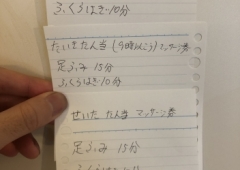 ふくらはぎ 10分
たいき たん当 (9時いこう) マッサージ券
足ふみ 15分
ふくらはぎ 10分
せいた たん当 マッサージ券
足ふみ 15分
ふくらはぎ 10分